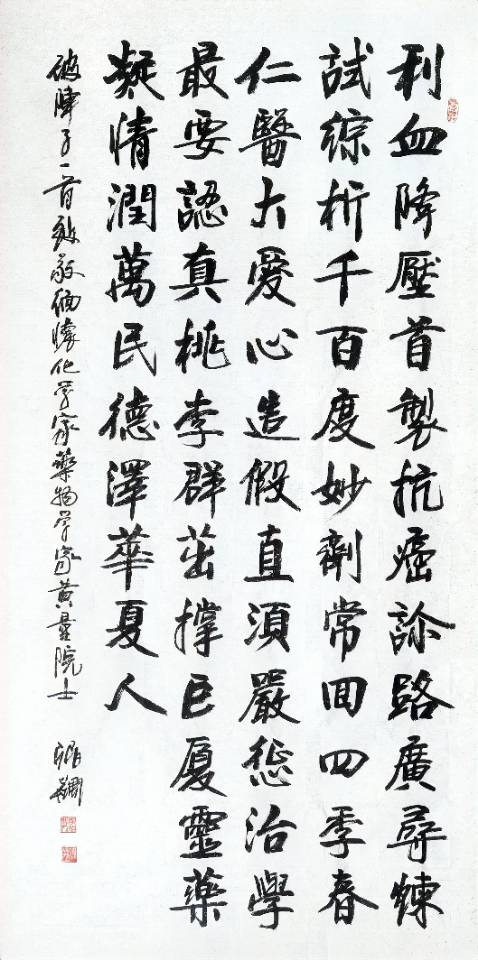 利血降壓首製抗癌診路廣尋練
試綜析千百度妙劑常回四季春
仁醫大愛心造假直須嚴懲治學
最要認真桃李群茁撐巨厦靈藥
凝情潤萬民德澤華夏人
破陣子一首致敬緬懷化学家藥物学家黄量院士